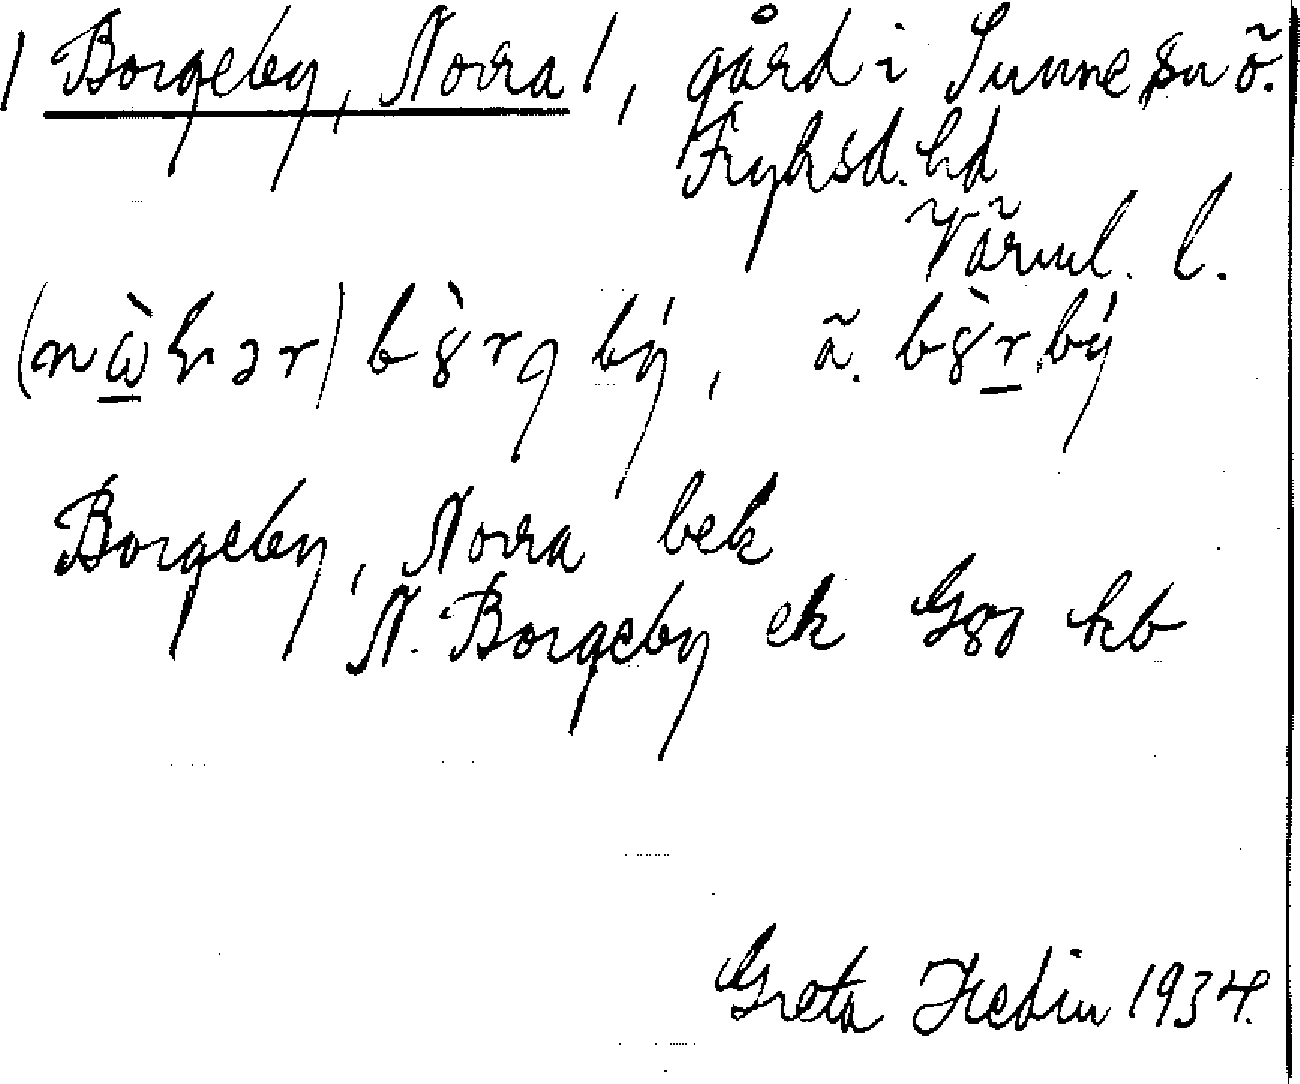 / Borgeby, Norra /, gård i Sunne sn ö.
Fryksd. hd
Värml. l.
bý, ä. bý
Borgeby, Norra bek
N. Borgeby ek Gsg kb
Greta Hedin 1934.